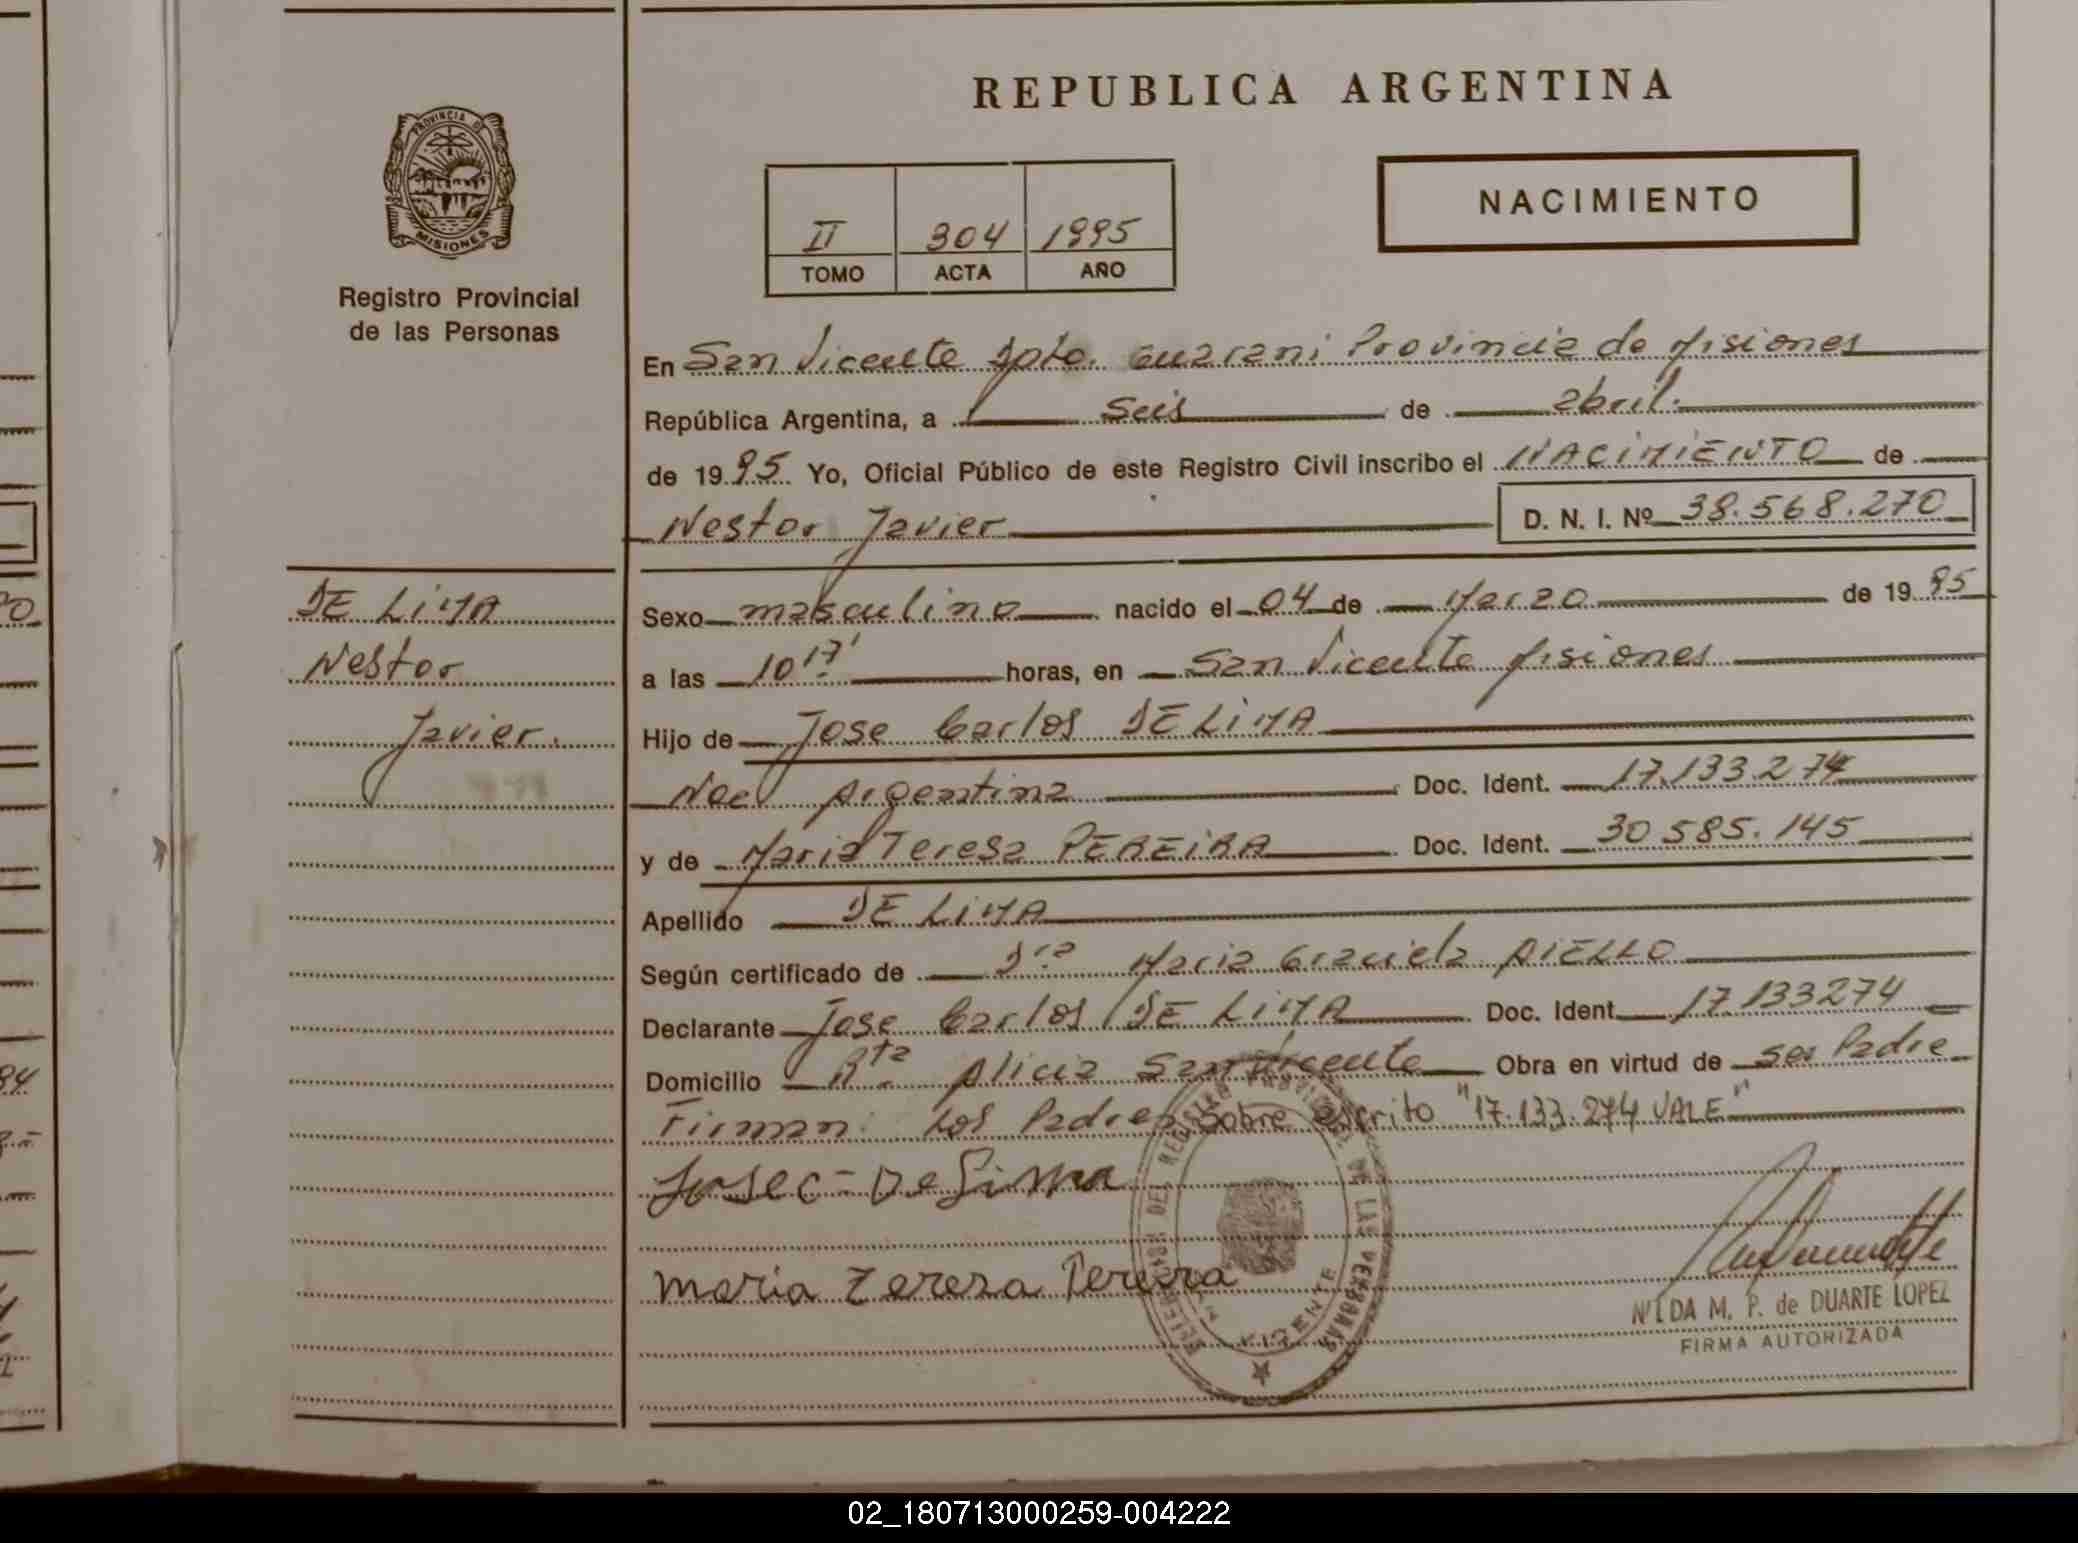 REPUBLICA ARGENTINA
PROVINCIA DE
MISIONES
Registro Provincial
de las Personas
NACIMIENTO
II 304 1995
TOMO ACTA AÑO
En San Vicente Dpto. Guarani Provincia de Misiones
República Argentina, a seis de abril.
de 1995 Yo, Oficial Público de este Registro Civil inscribo el NACIMIENTO de
Nestor Javier D. N. I. Nº 38.568.270
DE LIMA
Nestor
Javier.
Sexo masculino nacido el 04 de Marzo de 1995
a las 10 17' horas, en San Vicente Misiones
Hijo de Jose Carlos DE LIMA
Nac Argentina Doc. Ident. 17.133.274
y de Maria Teresa PEREIRA Doc. Ident. 30585.145
Apellido DE LIMA
Según certificado de Dra Maria Graciela AIELLO
Declarante Jose Carlos DE LIMA Doc. Ident 17.133274
Domicilio Pta Alicia San Vicente Obra en virtud de ser Padre
Firman: Los Padres Sobre escrito "17.133.274 VALE"
Jose C - De Lima
maria Tereza Pereira
NILDA M. P. de DUARTE LOPEZ
FIRMA AUTORIZADA
02_180713000259-004222